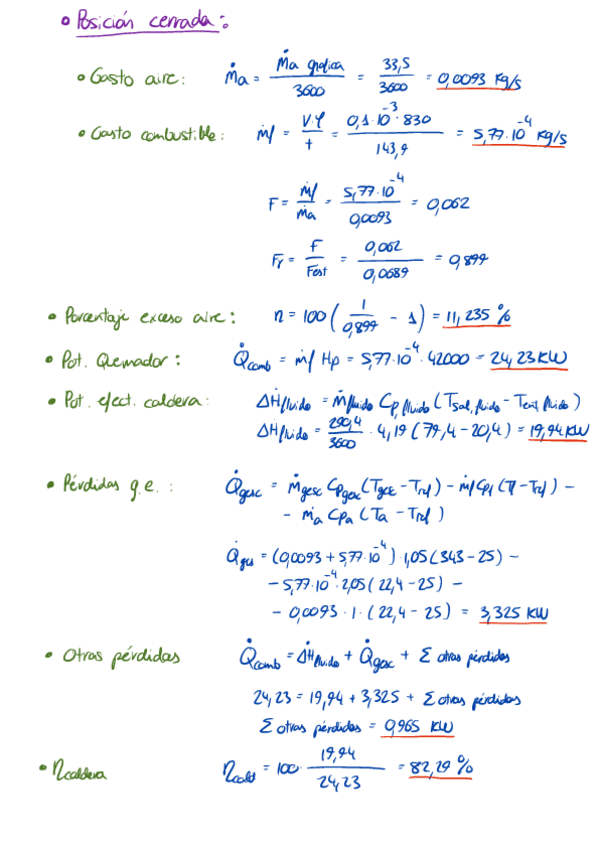 • Posición cerrada:
• Gasto aire: ṁa = ṁa grafica / 3600 = 33,5 / 3600 = 0,0093 Kg/s
• Gasto combustible: ṁf = V·ρ / t = 0,1·10⁻³·830 / 143,9 = 5,77·10⁻⁴ Kg/s
F = ṁf / ṁa = 5,77·10⁻⁴ / 0,0093 = 0,062
Fr = F / Fest = 0,062 / 0,0689 = 0,899
• Porcentaje exceso aire: n = 100 ( 1 / 0,899 - 1 ) = 11,235 %
• Pot. Quemador: Q̇comb = ṁf Hp = 5,77·10⁻⁴·42000 = 24,23 KW
• Pot. efect. caldera: ΔḢfluido = ṁfluido Cp,fluido (Tsal,fluido - Tent,fluido)
ΔḢfluido = 290,4 / 3600 · 4,19 (79,4 - 20,4) = 19,94 KW
• Pérdidas g.e.: Q̇gesc = ṁgesc Cpgesc (Tgesc - Tref) - ṁf Cpf (Tf - Tref) -
- ṁa Cpa (Ta - Tref)
Q̇ges = (0,0093 + 5,77·10⁻⁴)·1,05 (343 - 25) -
- 5,77·10⁻⁴·2,05 (22,4 - 25) -
- 0,0093·1·(22,4 - 25) = 3,325 KW
• Otras pérdidas Q̇comb = ΔḢfluido + Q̇gesc + Σ otras pérdidas
24,23 = 19,94 + 3,325 + Σ otras pérdidas
Σ otras pérdidas = 0,965 KW
• ηcaldera ηcald = 100· 19,94 / 24,23 = 82,29 %